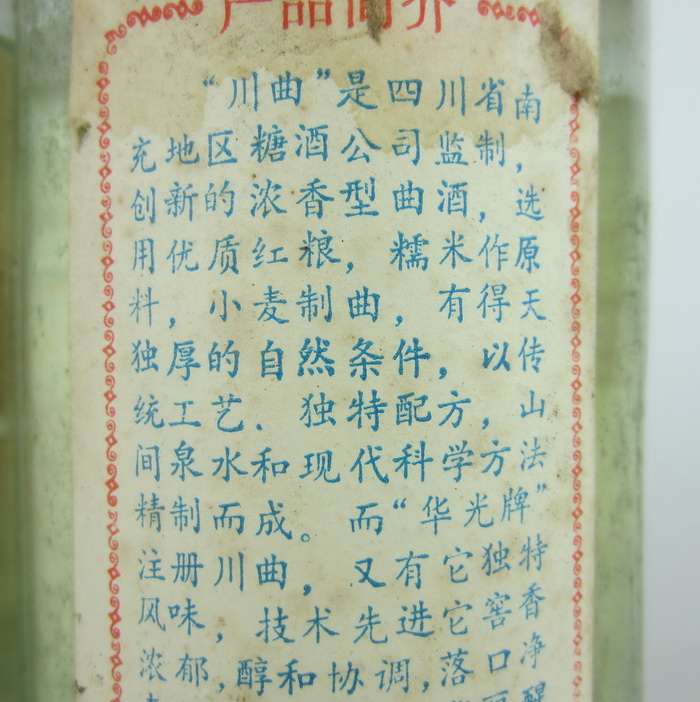 产品简介
“川曲”是四川省南
充地区糖酒公司监制，
创新的浓香型曲酒，选
用优质红粮，糯米作原
料，小麦制曲，有得天
独厚的自然条件，以传
统工艺．独特配方，山
间泉水和现代科学方法
精制而成。而“华光牌”
注册川曲，又有它独特
风味，技术先进它窖香
浓郁，醇和协调，落口净